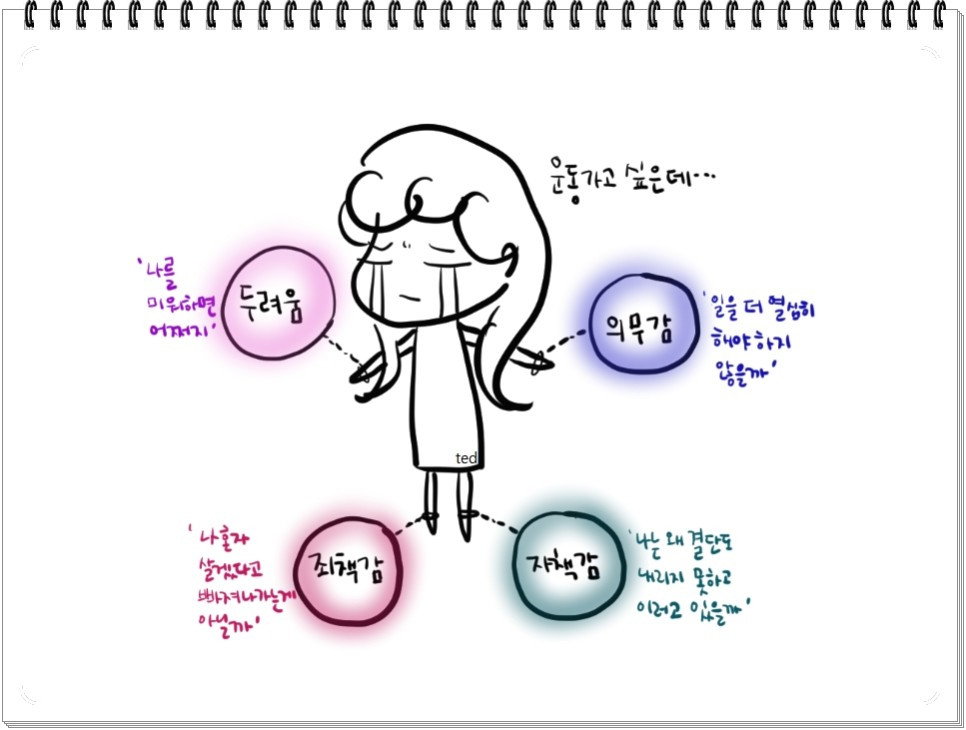 운동가고 싶은데...
'나를
미워하면
어쩌지'
두려움
의무감
'일을 더 열심히
해야 하지
않을까'
ted
'나혼자
살겠다고
빠져나가는게
아닐까'
죄책감
자책감
'나는 왜 결단도
내리지 못하고
이러고 있을까'